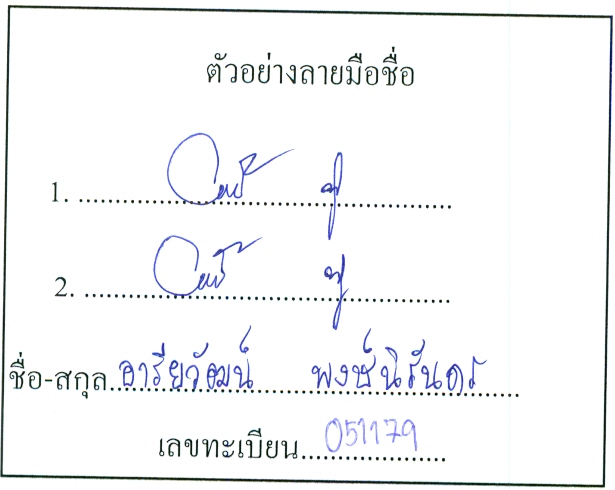 ตัวอย่างลายมือชื่อ
1.
2.
ชื่อ-สกุล อารียวัฒน์ พงษ์นิรันดร
เลขทะเบียน 051179